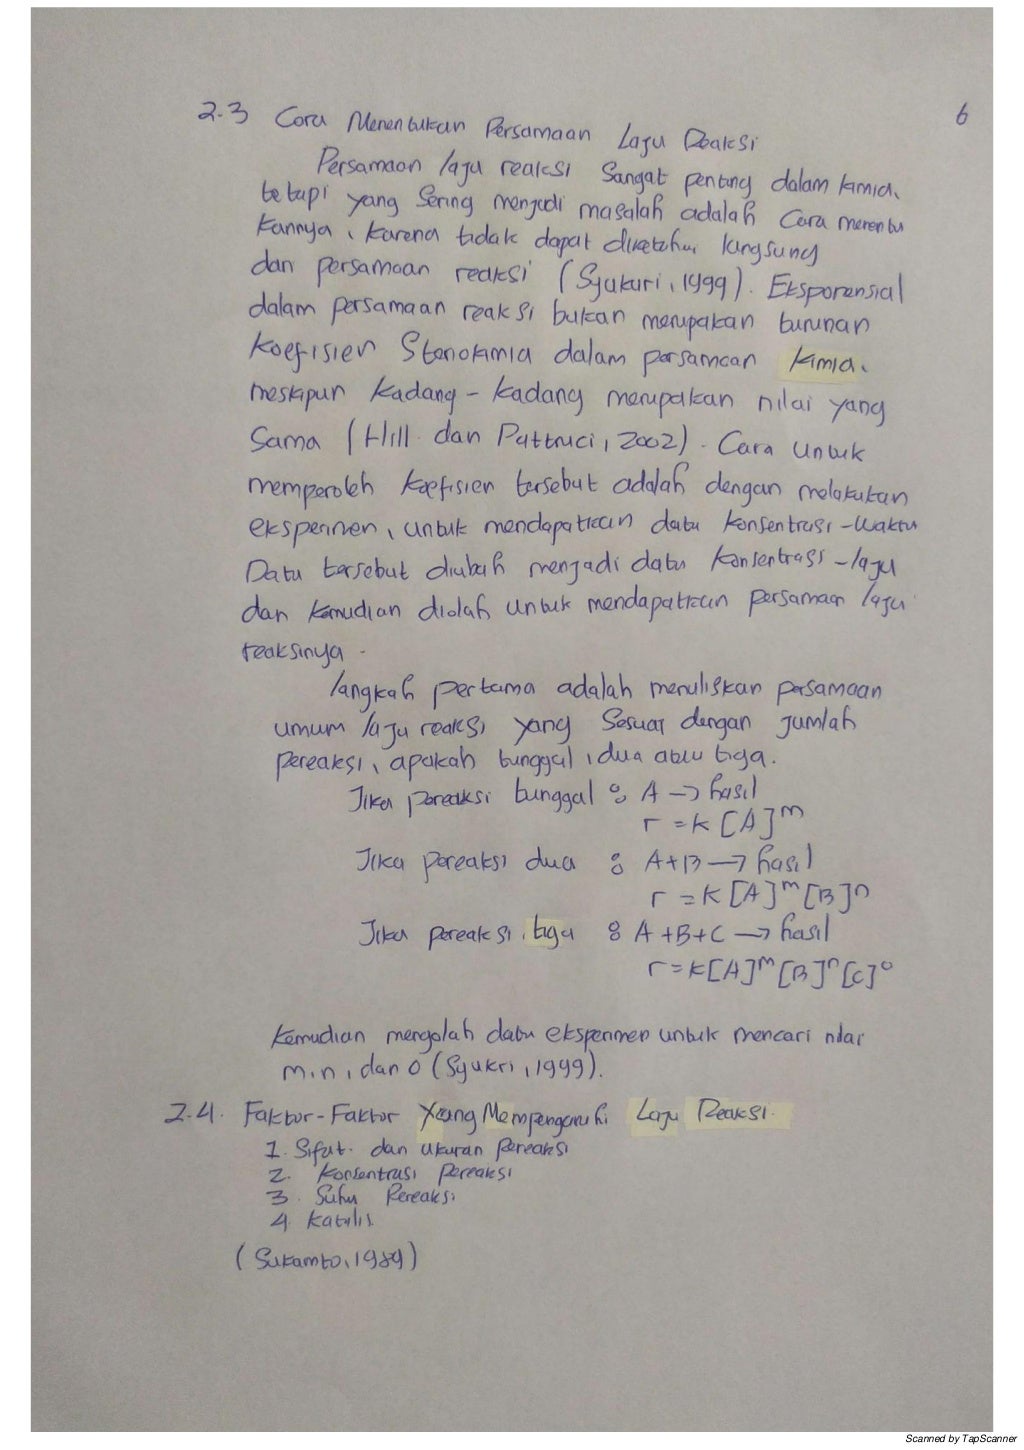 6
2.3 Cara Menentukan Persamaan Laju Reaksi
Persamaan laju reaksi sangat penting dalam kimia,
tetapi yang sering menjadi masalah adalah cara menentu
kannya, karena tidak dapat diketahui langsung
dari persamaan reaksi (Syukuri, 1999). Eksponensial
dalam persamaan reaksi bukan merupakan turunan
koefisien Stenokimia dalam persamaan kimia,
meskipun kadang-kadang merupakan nilai yang
sama (Hill dan Pettruci, 2002). Cara untuk
memperoleh koefisien tersebut adalah dengan melakukan
eksperimen, untuk mendapatkan data konsentrasi-waktu
Data tersebut diubah menjadi data konsentrasi-laju
dan kemudian diolah untuk mendapatkan persamaan laju
reaksinya.
langkah pertama adalah menuliskan persamaan
umum laju reaksi yang sesuai dengan jumlah
pereaksi, apakah tunggal, dua atau tiga.
Jika pereaksi tunggal : A → hasil
r = k [A]^m
Jika pereaksi dua : A+B → hasil
r = k [A]^m [B]^n
Jika pereaksi tiga : A+B+C → hasil
r = k[A]^m [B]^n [C]^o
Kemudian mengolah data eksperimen untuk mencari nilai
m, n, dan o (Syukri, 1999).
2.4. Faktor-Faktor Yang Mempengaruhi Laju Reaksi.
1. Sifat dan ukuran pereaksi
2. Konsentrasi pereaksi
3. Suhu Pereaksi
4. Katalis
(Sukamto, 1989)
Scanned by TapScanner